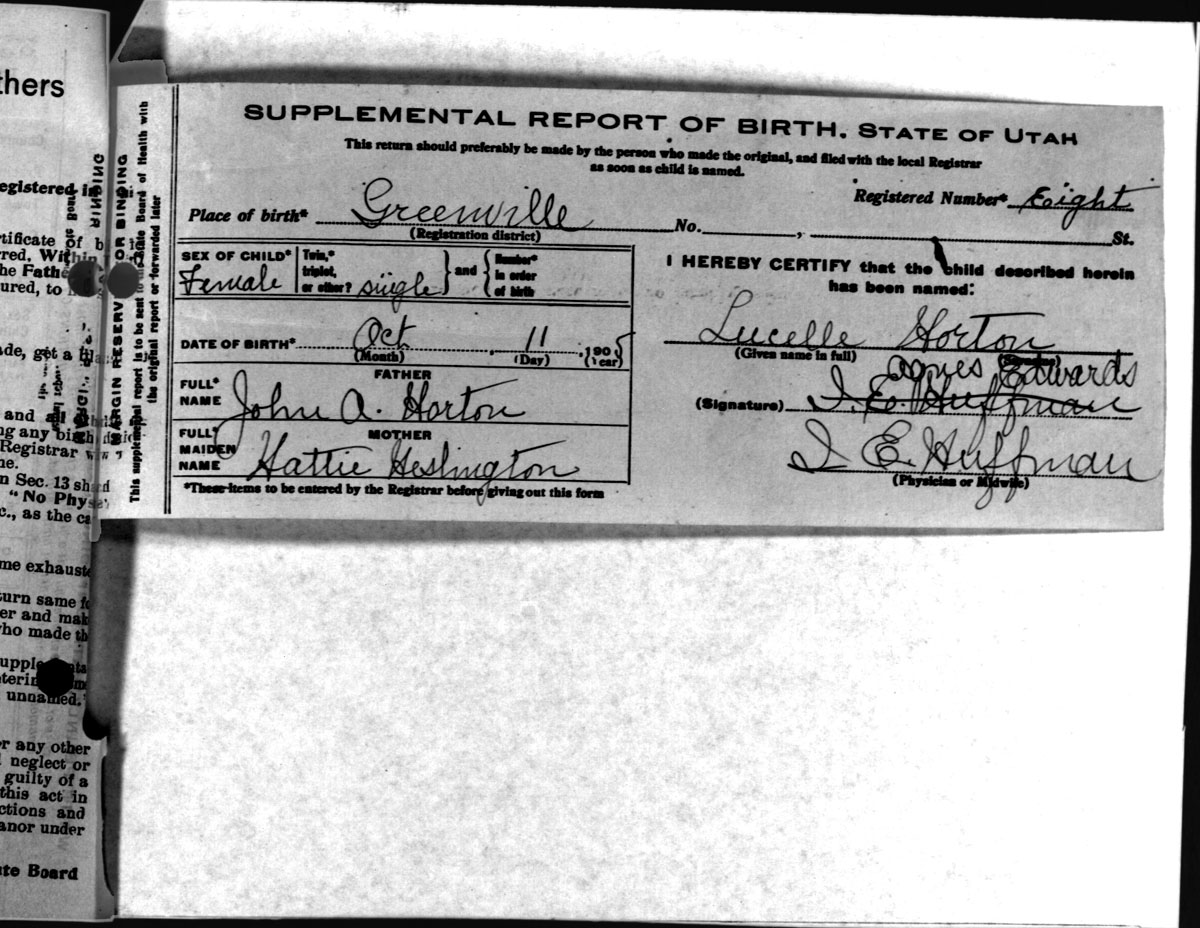 thers
egistered in
tificate of b
rred, Within
he Fathe
ured, to
ade, get a bla
and all
ng any birth
Registrar w
ne.
n Sec. 13 sh
"No Phys
c., as the ca
me exhauste
turn same fo
er and mak
who made th
upplementa
terin
unnamed."
r any other
neglect or
guilty of a
this act in
ctions and
anor under
te Board
MARGIN RESERV OR BINDING
This supplemental report is to be sent to the State Board of Health with
the original report or forwarded later
SUPPLEMENTAL REPORT OF BIRTH. STATE OF UTAH
This return should preferably be made by the person who made the original, and filed with the local Registrar
as soon as child is named.
Registered Number* Eight
Place of birth* Greenville No. , St.
(Registration district)
SEX OF CHILD* Female
Twin,* triplet, or other? single } and { Number* in order of birth
DATE OF BIRTH* Oct. 11 1905
(Month) (Day) (Year)
FATHER
FULL* NAME John A. Horton
MOTHER
FULL* MAIDEN NAME Hattie Heslington
*These items to be entered by the Registrar before giving out this form
I HEREBY CERTIFY that the child described herein
has been named:
Lucelle Horton
(Given name in full) (Surname)
Agnes Edwards
(Signature) I. E. Huffman
I E. Huffman
(Physician or Midwife)